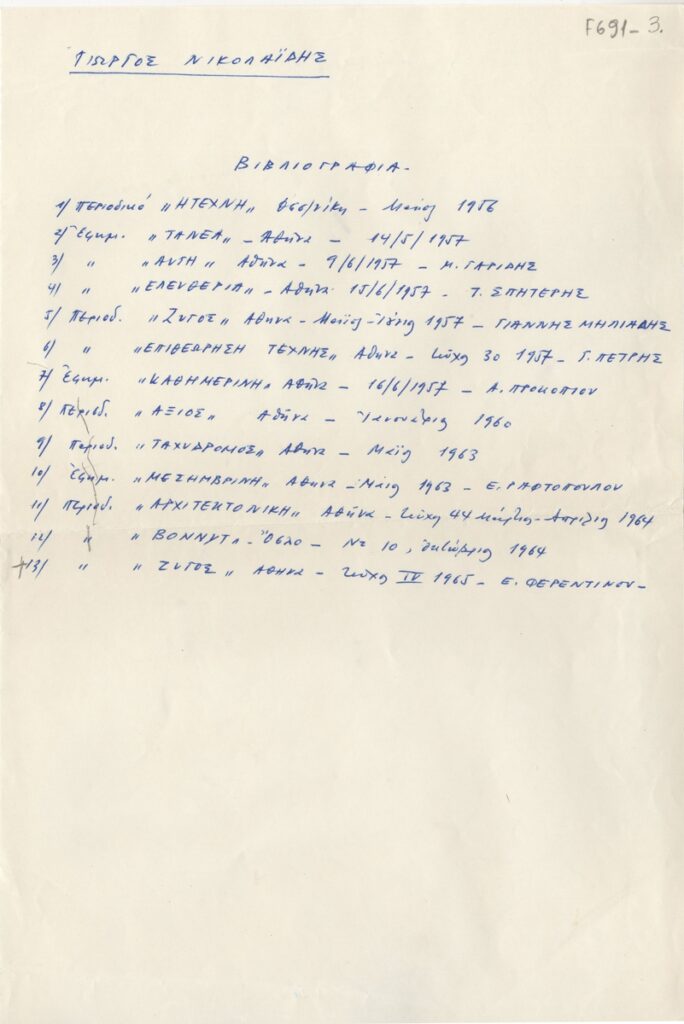 F691-3.
ΓΙΩΡΓΟΣ ΝΙΚΟΛΑΪΔΗΣ
ΒΙΒΛΙΟΓΡΑΦΙΑ.
1/ Περιοδικό „Η ΤΕΧΝΗ„ Θεσ/νίκη - Μαϊος 1956
2/ Έφημ. „ΤΑ ΝΕΑ„ - Αθήνα - 14/5/1957
3/ „ „ΑΥΓΗ„ Αθήνα - 9/6/1957 - Μ. ΓΑΡΙΔΗΣ
4/ „ „ΕΛΕΥΘΕΡΙΑ„ - Αθήνα 15/6/1957 - Τ. ΣΠΗΤΕΡΗΣ
5/ Περιοδ. „ΖΥΓΟΣ„ Αθήνα - Μαϊος-Ιούνιος 1957 - ΓΙΑΝΝΗΣ ΜΗΛΙΑΔΗΣ
6/ „ „ΕΠΙΘΕΩΡΗΣΗ ΤΕΧΝΗΣ„ Αθήνα - τεύχος 30 1957 - Γ. ΠΕΤΡΗΣ
7/ Έφημ. „ΚΑΘΗΜΕΡΙΝΗ„ Αθήνα - 16/6/1957 - Α. ΠΡΟΚΟΠΙΟΥ
8/ Περιοδ. „ΑΞΙΟΣ„ Αθήνα - Ιανουάριος 1960
9/ Περιοδ. „ΤΑΧΥΔΡΟΜΟΣ„ Αθήνα - Μαϊος 1963
10/ Έφημ. „ΜΕΣΗΜΒΡΙΝΗ„ Αθήνα - Μάιος 1963 - Ε. ΡΑΦΤΟΠΟΥΛΟΥ
11/ Περιοδ. „ΑΡΧΙΤΕΚΤΟΝΙΚΗ„ Αθήνα - τεύχος 44 Μάρτιος-Απρίλιος 1964
12/ „ „ΒΟΝΝΥΤ„ - Όσλο - Νο 10, Οκτώβριος 1964
+13/ „ „ΖΥΓΟΣ„ Αθήνα - τεύχος IV 1965 - Ε. ΦΕΡΕΝΤΙΝΟΥ -